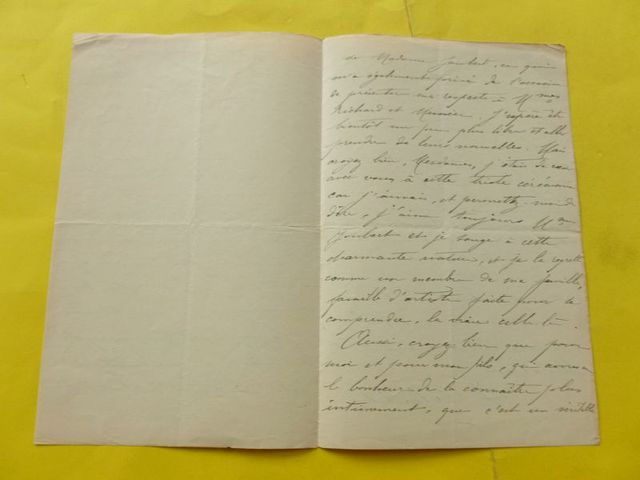 de Madame Joubert, ce qui
m'a également privé de l'occasion
de présenter mes respects à Mmes
Richard et Meunier. J'espère être
bientôt un peu plus libre et aller
prendre de leurs nouvelles. Mais
croyez bien, Mesdames, j'étais de cœur
avec vous à cette triste cérémonie
car j'aimais, et permettez-moi de
dire, j'aime toujours Mme
Joubert et je songe à cette
charmante nature, et je la regrette
comme un membre de ma famille,
famille d'artiste faite pour la
comprendre, la vraie celle-là.
Aussi, croyez bien que pour
moi et pour mon fils, qui avons eu
le bonheur de la connaître plus
intimement, que c'est un véritable